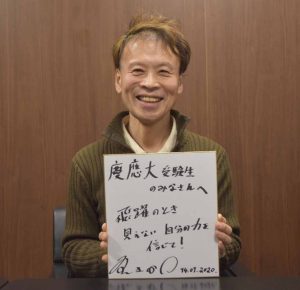 慶應大受験生
のみなさんへ
飛躍のとき
見えない自分の力を
信じて!
14.07.2020